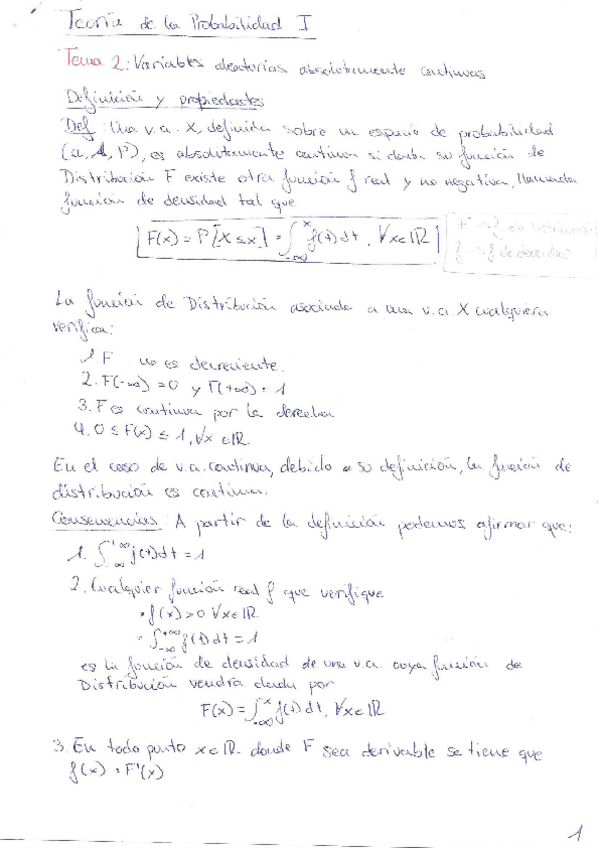 Teoría de la Probabilidad I
Tema 2: Variables aleatorias absolutamente continuas
Definición y propiedades
Def: Una v.a. X, definida sobre un espacio de probabilidad
(Ω, A, P), es absolutamente continua si dada su función de
Distribución F existe otra función f real y no negativa, llamada
función de densidad tal que
F(x) = P[X ≤ x] = ∫_{-∞}^{x} f(t) dt, ∀x∈ℝ
F → f. de distribución
f → f. de densidad
La función de Distribución asociada a una v.a. X cualquiera
verifica:
1 F no es decreciente.
2. F(-∞) = 0 y F(+∞) = 1
3. F es continua por la derecha
4. 0 ≤ F(x) ≤ 1, ∀x ∈ℝ
En el caso de v.a. continua, debido a su definición, la función de
distribución es continua.
Consecuencias: A partir de la definición podemos afirmar que:
1. ∫_{-∞}^{+∞} f(t) dt = 1
2. Cualquier función real f que verifique
· f(x) > 0 ∀x∈ℝ
· ∫_{-∞}^{+∞} f(t) dt = 1
es la función de densidad de una v.a. cuya función de
Distribución vendrá dada por
F(x) = ∫_{-∞}^{x} f(t) dt, ∀x∈ℝ
3. En todo punto x∈ℝ donde F sea derivable se tiene que
f(x) = F'(x)
1